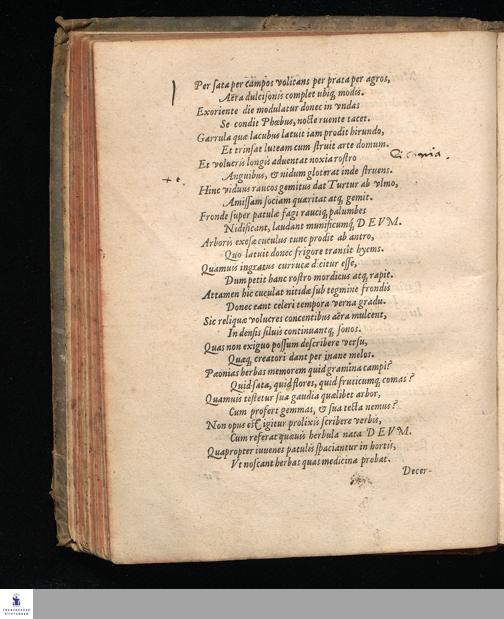 Per sata per cãmpos volitans per prata per agros,
Aëra dulcisonis complet ubiq; modis.
Exoriente die modulatur donec in vndas
Se condit Phœbus, nocte ruente tacet.
Garrula quæ lacubus latuit iam prodit hirundo,
Et trinsat luteam cum struit arte domum.
Et volucris longis aduentat noxia rostro
Ciconia.
Anguibus, & nidum gloterat inde struens.
Hinc viduus raucos gemitus dat Turtur ab vlmo,
Amissam sociam quæritat atq; gemit.
Fronde super patulæ fagi rauciq; palumbes
Nidificant, laudant munificumq; DEVM.
Arboris exesæ cuculus tunc prodit ab antro,
Quo latuit donec frigore transit hyems.
Quamuis ingratus currucæ dicitur esse,
Dum petit hanc rostro mordicus atq; rapit.
Attamen hic cuculat nitidæ sub tegmine frondis
Donec eant celeri tempora verna gradu.
Sic reliquæ volucres concentibus aëra mulcent,
In densis siluis continuantq; sonos.
Quas non exiguo possum describere versu,
Quæq; creatori dant per inane melos.
Pæonias herbas memorem quid gramina campi?
Quid sata, quid flores, quid fruticumq; comas?
Quamuis testetur sua gaudia quælibet arbor,
Cum profert gemmas, & sua tecta nemus?
Non opus est igitur prolixis scribere verbis,
Cum referat quæuis herbula nata DEVM.
Quapropter iuuenes patulis spaciantur in hortis,
Vt noscant herbas quas medicina probat.
Decer-
FRANCKESCHE
STIFTUNGEN